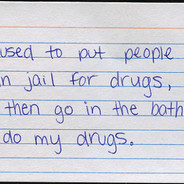 used to put people
in jail for drugs,
then go in the bath
do my drugs.